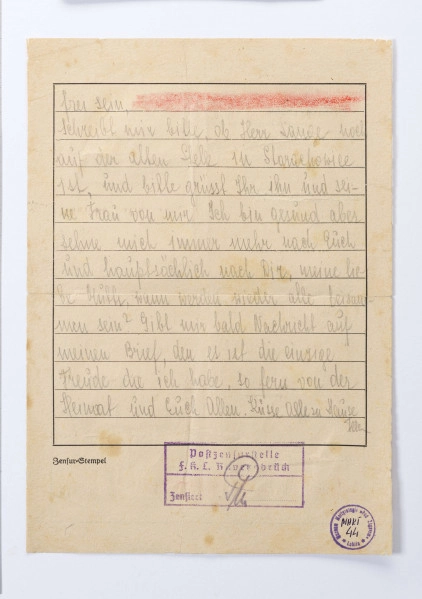 frei sein,
Schreibt mir bitte, ob Herr noch
auf der alten in Starachowice
ist, und bitte grüsst Ihr ihn und sei-
ne Frau von mir. Ich bin gesund aber
sehne mich immer mehr nach Euch
und hauptsächlich nach Dir, meine lie-
be wann werden wieder alle zusam-
men sein? Gibt mir bald Nachricht auf
meinen Brief, den es ist die einzige
Freude die ich habe, so fern von der
Heimat und Euch Allen. Küsse Alle zu Hause
Zensur-Stempel
Postzensurstelle
F. K. L. Ravensbrück
Zensiert